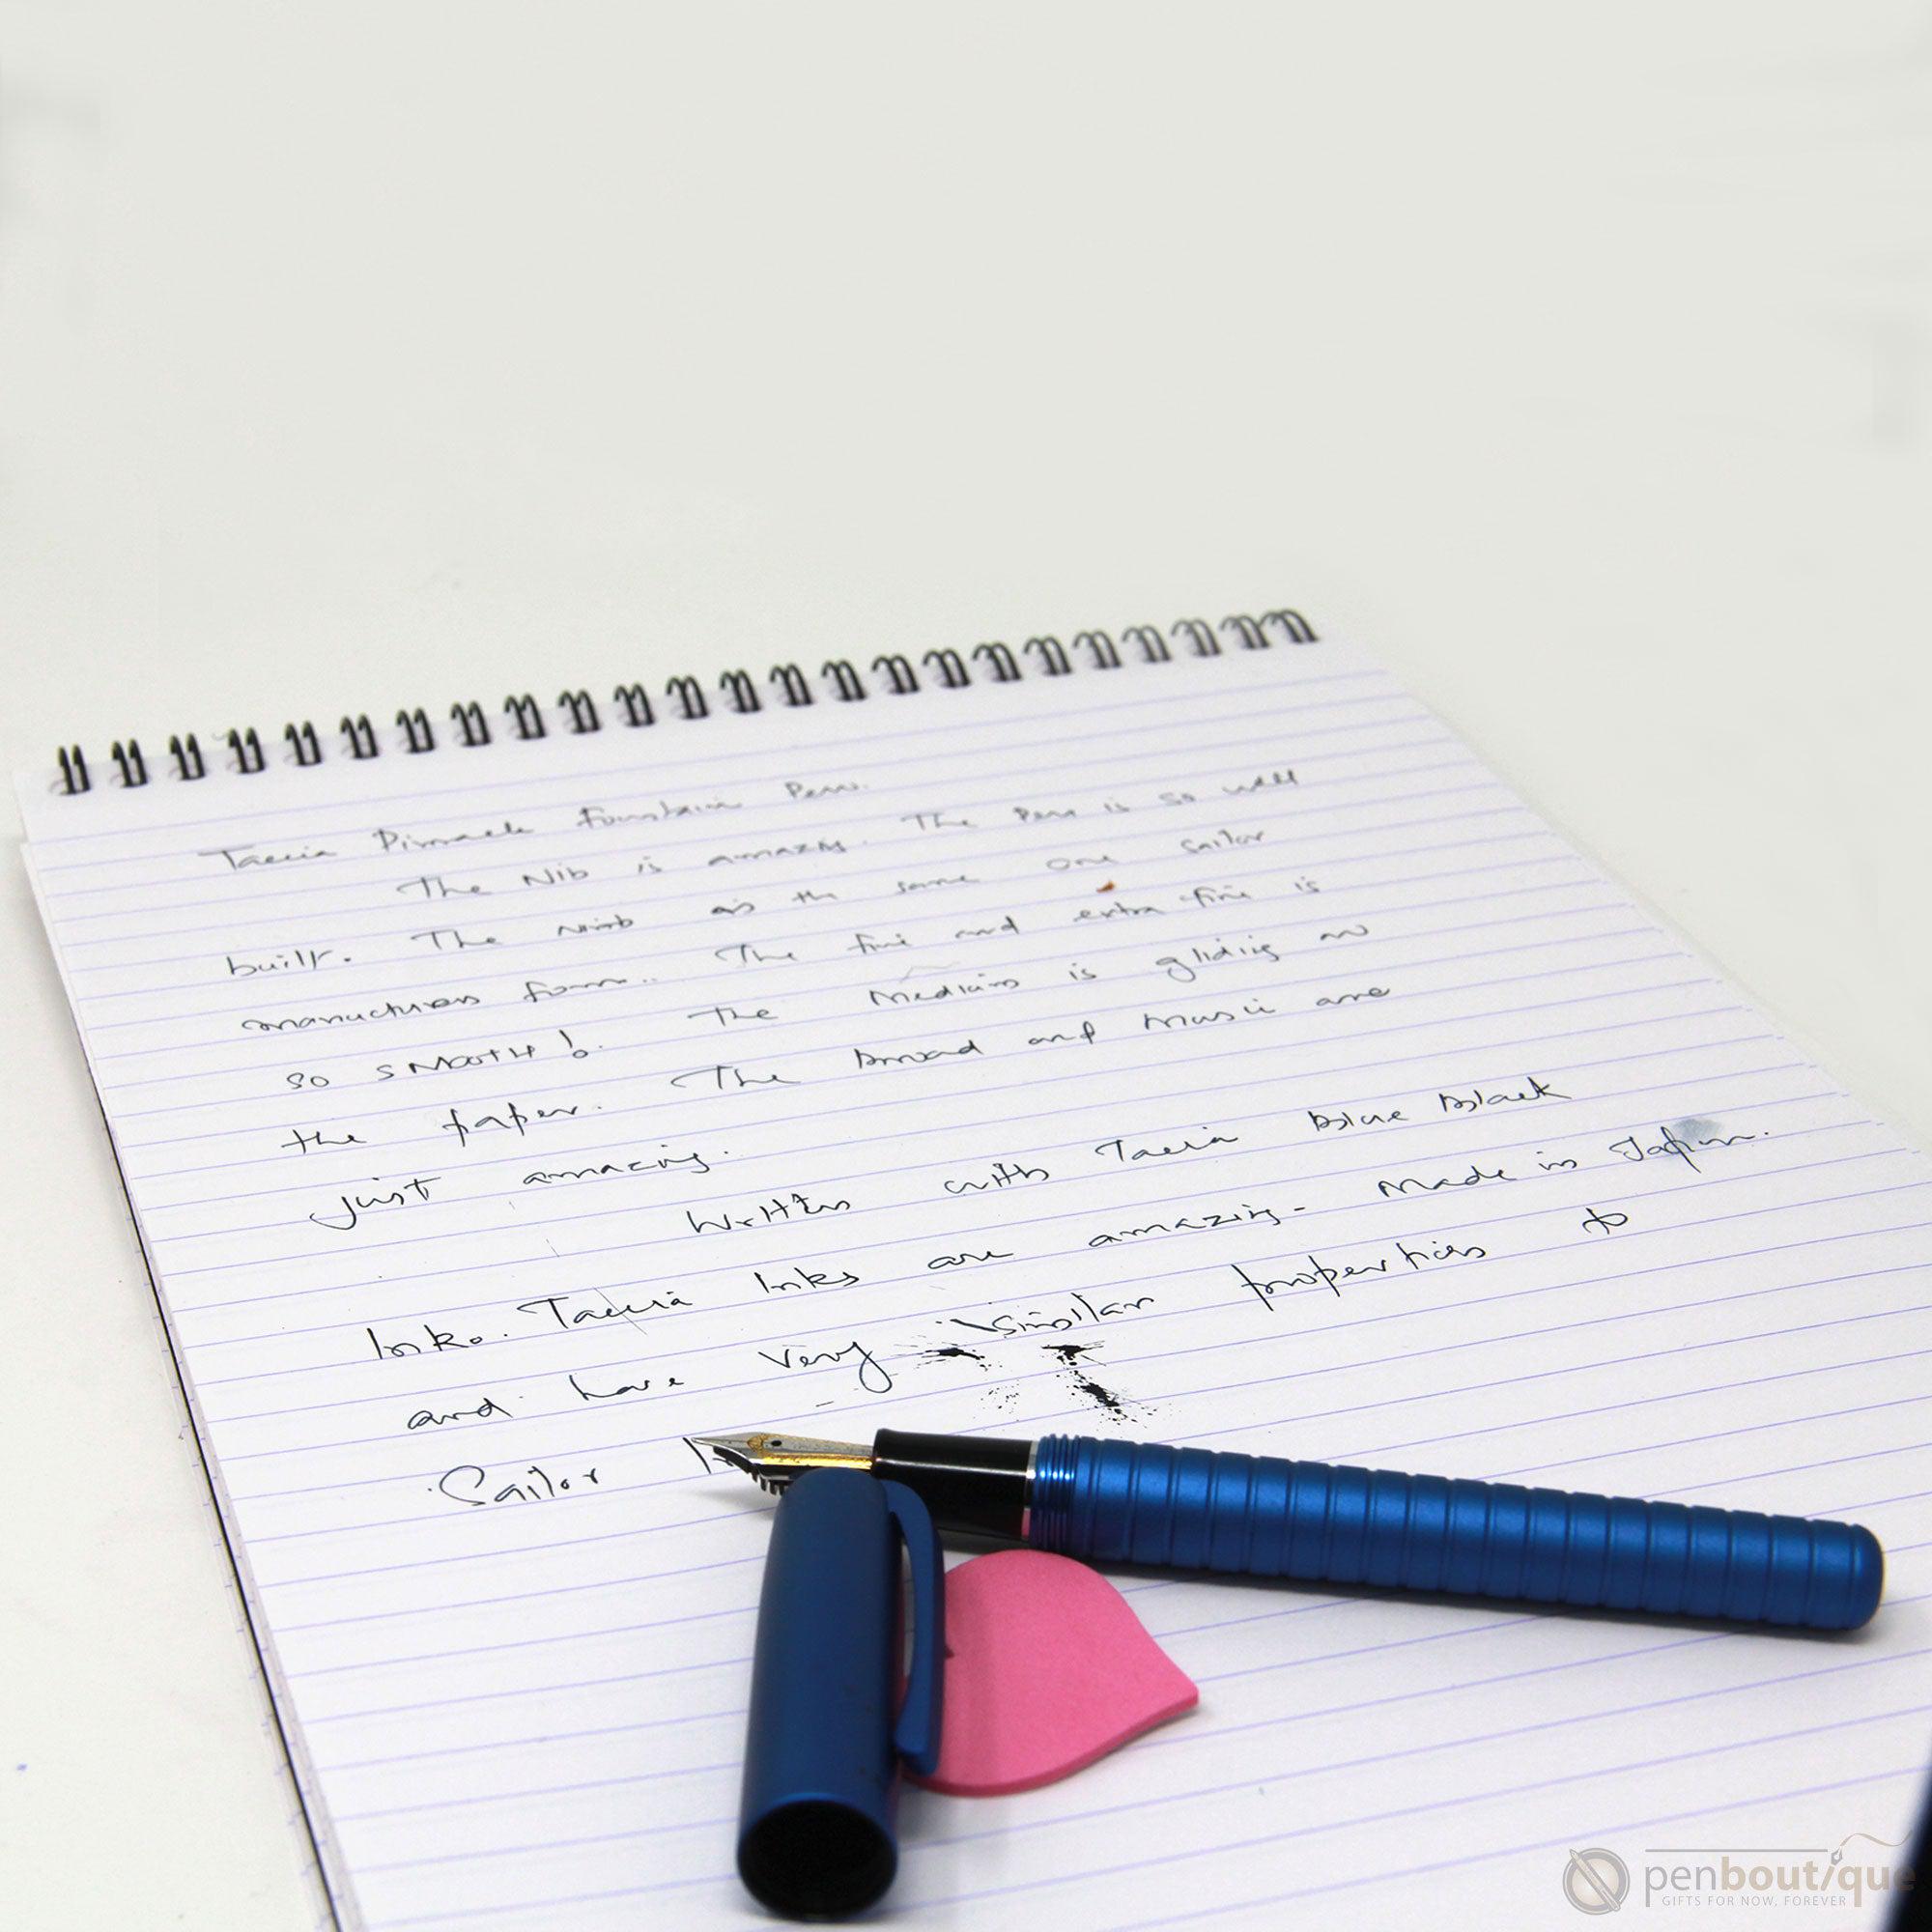 Taccia Pinnacle Fountain Pen.
The Nib is amazing. The Pen is so well
built. The is the same one Sailor
from.. The fine and extra fine is
so SMOOTH! The Medium is gliding on
the paper. The Broad and Music are
just amazing.
Written with Taccia Blue Black
Inks. Taccia Inks are amazing. Made in Japan.
and have very similar properties to
Sailor
penboutique
GIFTS FOR NOW, FOREVER